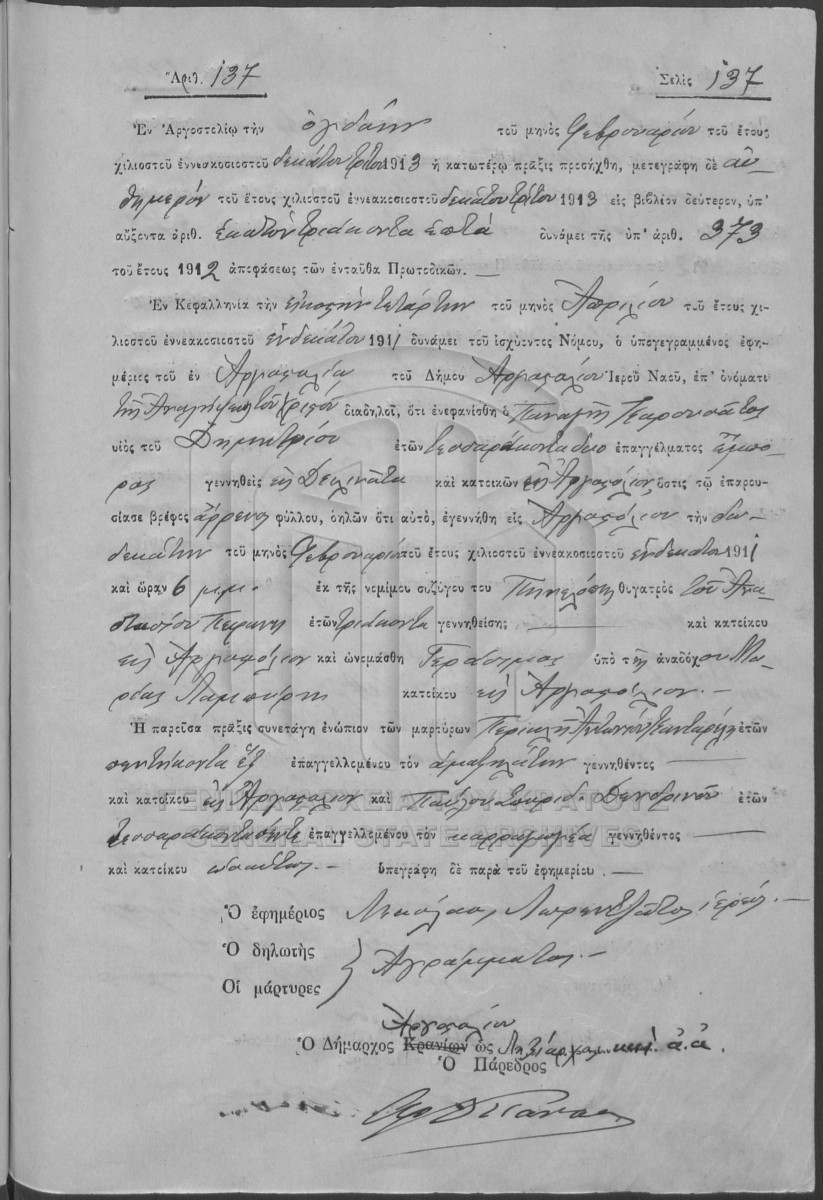 Ἀριθ. 137 Σελὶς 137
Ἐν Ἀργοστολίῳ τὴν ὀγδόην τοῦ μηνὸς Φεβρουαρίου τοῦ ἔτους
χιλιοστοῦ ἐννεακοσιοστοῦ δεκάτου τρίτου 1913 ἡ κατωτέρω πρᾶξις προσήχθη, μετεγράφη δὲ αὐ-
θημερὸν τοῦ ἔτους χιλιοστοῦ ἐννεακοσιοστοῦ δεκάτου τρίτου 1913 εἰς βιβλίον δεύτερον, ὑπ'
αὔξοντα ἀριθ. ἑκατὸν τριάκοντα ἑπτὰ δυνάμει τῆς ὑπ' ἀριθ. 373
τοῦ ἔτους 1912 ἀποφάσεως τῶν ἐνταῦθα Πρωτοδικῶν. —
Ἐν Κεφαλληνίᾳ τὴν εἰκοστὴν τετάρτην τοῦ μηνὸς Ἀπριλίου τοῦ ἔτους χι-
λιοστοῦ ἐννεακοσιοστοῦ ἑνδεκάτου 1911 δυνάμει τοῦ ἰσχύοντος Νόμου, ὁ ὑπογεγραμμένος ἐφη-
μέριος τοῦ ἐν Ἀργοστολίῳ τοῦ Δήμου Ἀργοστολίου Ἱεροῦ Ναοῦ, ἐπ' ὀνόματι
τῆς Ἀναλήψεως τοῦ Χριστοῦ διαδηλοῖ, ὅτι ἐνεφανίσθη ὁ Παναγῆς
υἱὸς τοῦ Δημητρίου ἐτῶν τεσσαράκοντα δύο ἐπαγγέλματος ἔμπο-
ρος γεννηθεὶς εἰς Δειλινάτα καὶ κατοικῶν εἰς Ἀργοστόλιον, ὅστις τῷ ἐπαρου-
σίασε βρέφος ἄρρενος φύλλου, δηλῶν ὅτι αὐτό, ἐγεννήθη εἰς Ἀργοστόλιον τὴν δω-
δεκάτην τοῦ μηνὸς Φεβρουαρίου τοῦ ἔτους χιλιοστοῦ ἐννεακοσιοστοῦ ἑνδεκάτου 1911
καὶ ὥραν 6 μ.μ. ἐκ τῆς νομίμου συζύγου του Πηνελόπης θυγατρὸς τοῦ Ἀνα-
στασίου ἐτῶν τριάκοντα γεννηθείσης — καὶ κατοίκου
εἰς Ἀργοστόλιον καὶ ὠνομάσθη Γεράσιμος ὑπὸ τῆς ἀναδόχου Μα-
ρίας κατοίκου εἰς Ἀργοστόλιον. —
Ἡ παροῦσα πρᾶξις συνετάγη ἐνώπιον τῶν μαρτύρων Περικλῆ Ἀντωνίου ἐτῶν
πεντήκοντα ἓξ ἐπαγγελλομένου τὸν ἁμαξηλάτην γεννηθέντος —
καὶ κατοίκου εἰς Ἀργοστόλιον καὶ Παύλου Σπυρίδ. Δενδρινοῦ ἐτῶν
τεσσαράκοντα πέντε ἐπαγγελλομένου τὸν καρραγωγέα γεννηθέντος —
καὶ κατοίκου ὡσαύτως. — ὑπεγράφη δὲ παρὰ τοῦ ἐφημερίου. —
ΓΕΝΙΚΑ ΑΡΧΕΙΑ ΤΟΥ ΚΡΑΤΟΥΣ
GENERAL STATE ARCHIVES
Ὁ ἐφημέριος Νικόλαος Λορεντζάτος ἱερεύς. —
Ὁ δηλωτὴς
Ἀγράμματοι. —
Οἱ μάρτυρες
Ἀργοστολίου
Ὁ Δήμαρχος Κρανίων ὡς Ληξίαρχος κ.ἀ.ἀ.
Ὁ Πάρεδρος